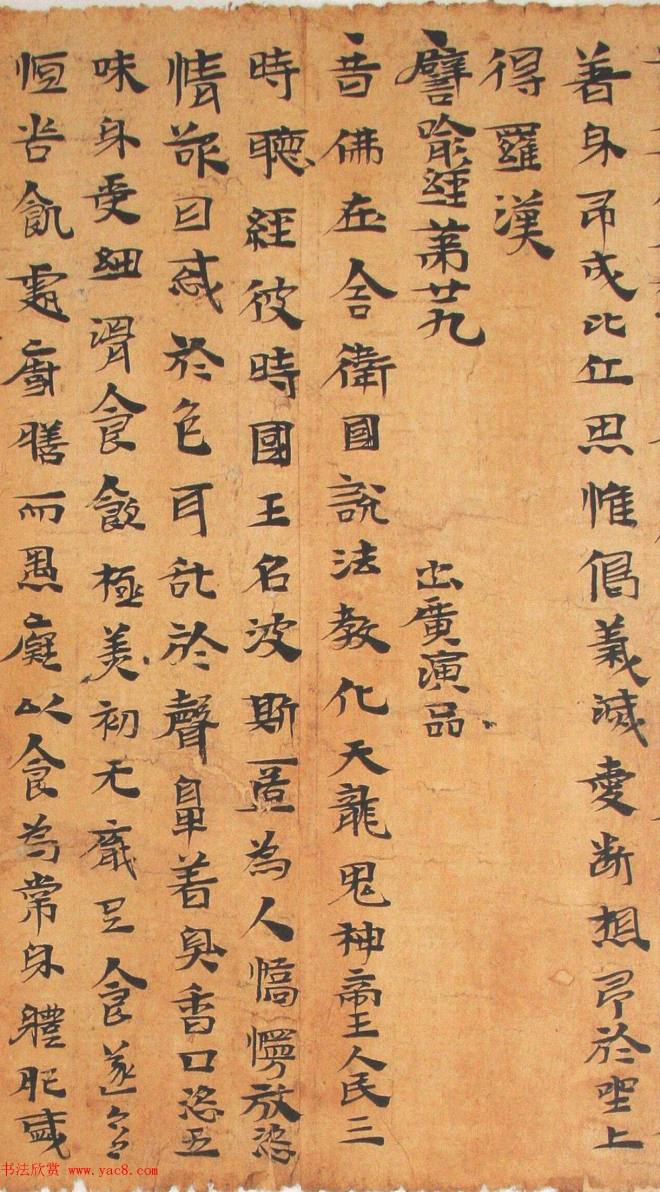 善身即成比丘思惟偈義滅愛斷想即於坐上
得羅漢
譬喻經第廿九 出廣演品
昔佛在舍衛國說法教化天龍鬼神帝王人民三
時聽經彼時國王名波斯匿為人憍慢放恣
情欲目惑於色耳乱於聲鼻著臭香口恣五
味身更細滑食飲極美初无厭足食遂
恒苦飢虛廚膳而愚廢以食為常身體肥盛
书法欣赏 www.yac8.com